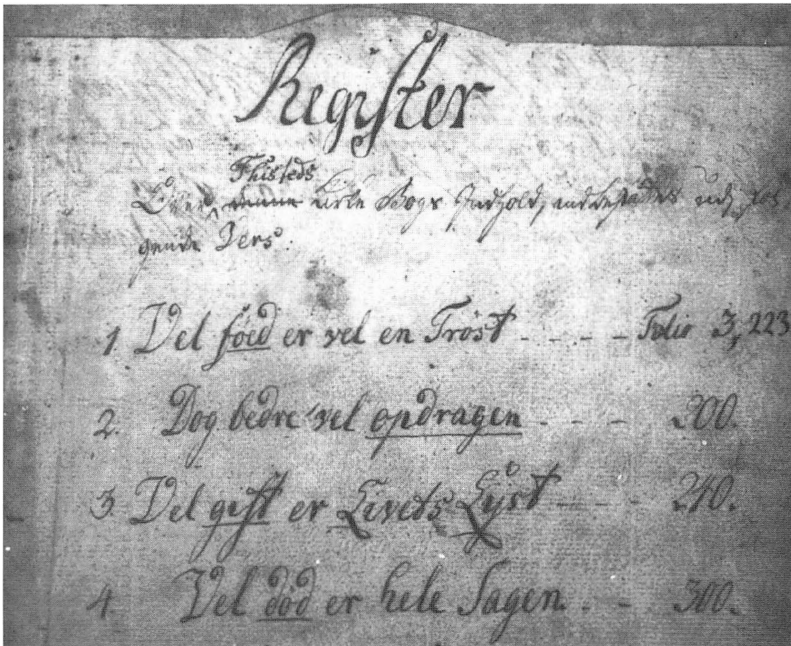 Register
Thisteds
Over denne Liele Bogs Indhold, indbefattet udj føl-
gende Vers:
1. Vel føed er vel en Trøst - - - - Folio 3, 223
2. Dog bedre vel opdragen - - - 200.
3. Vel gift er Levets Lyst - - - - 240.
4. Vel død er hele Sagen. - - 300.